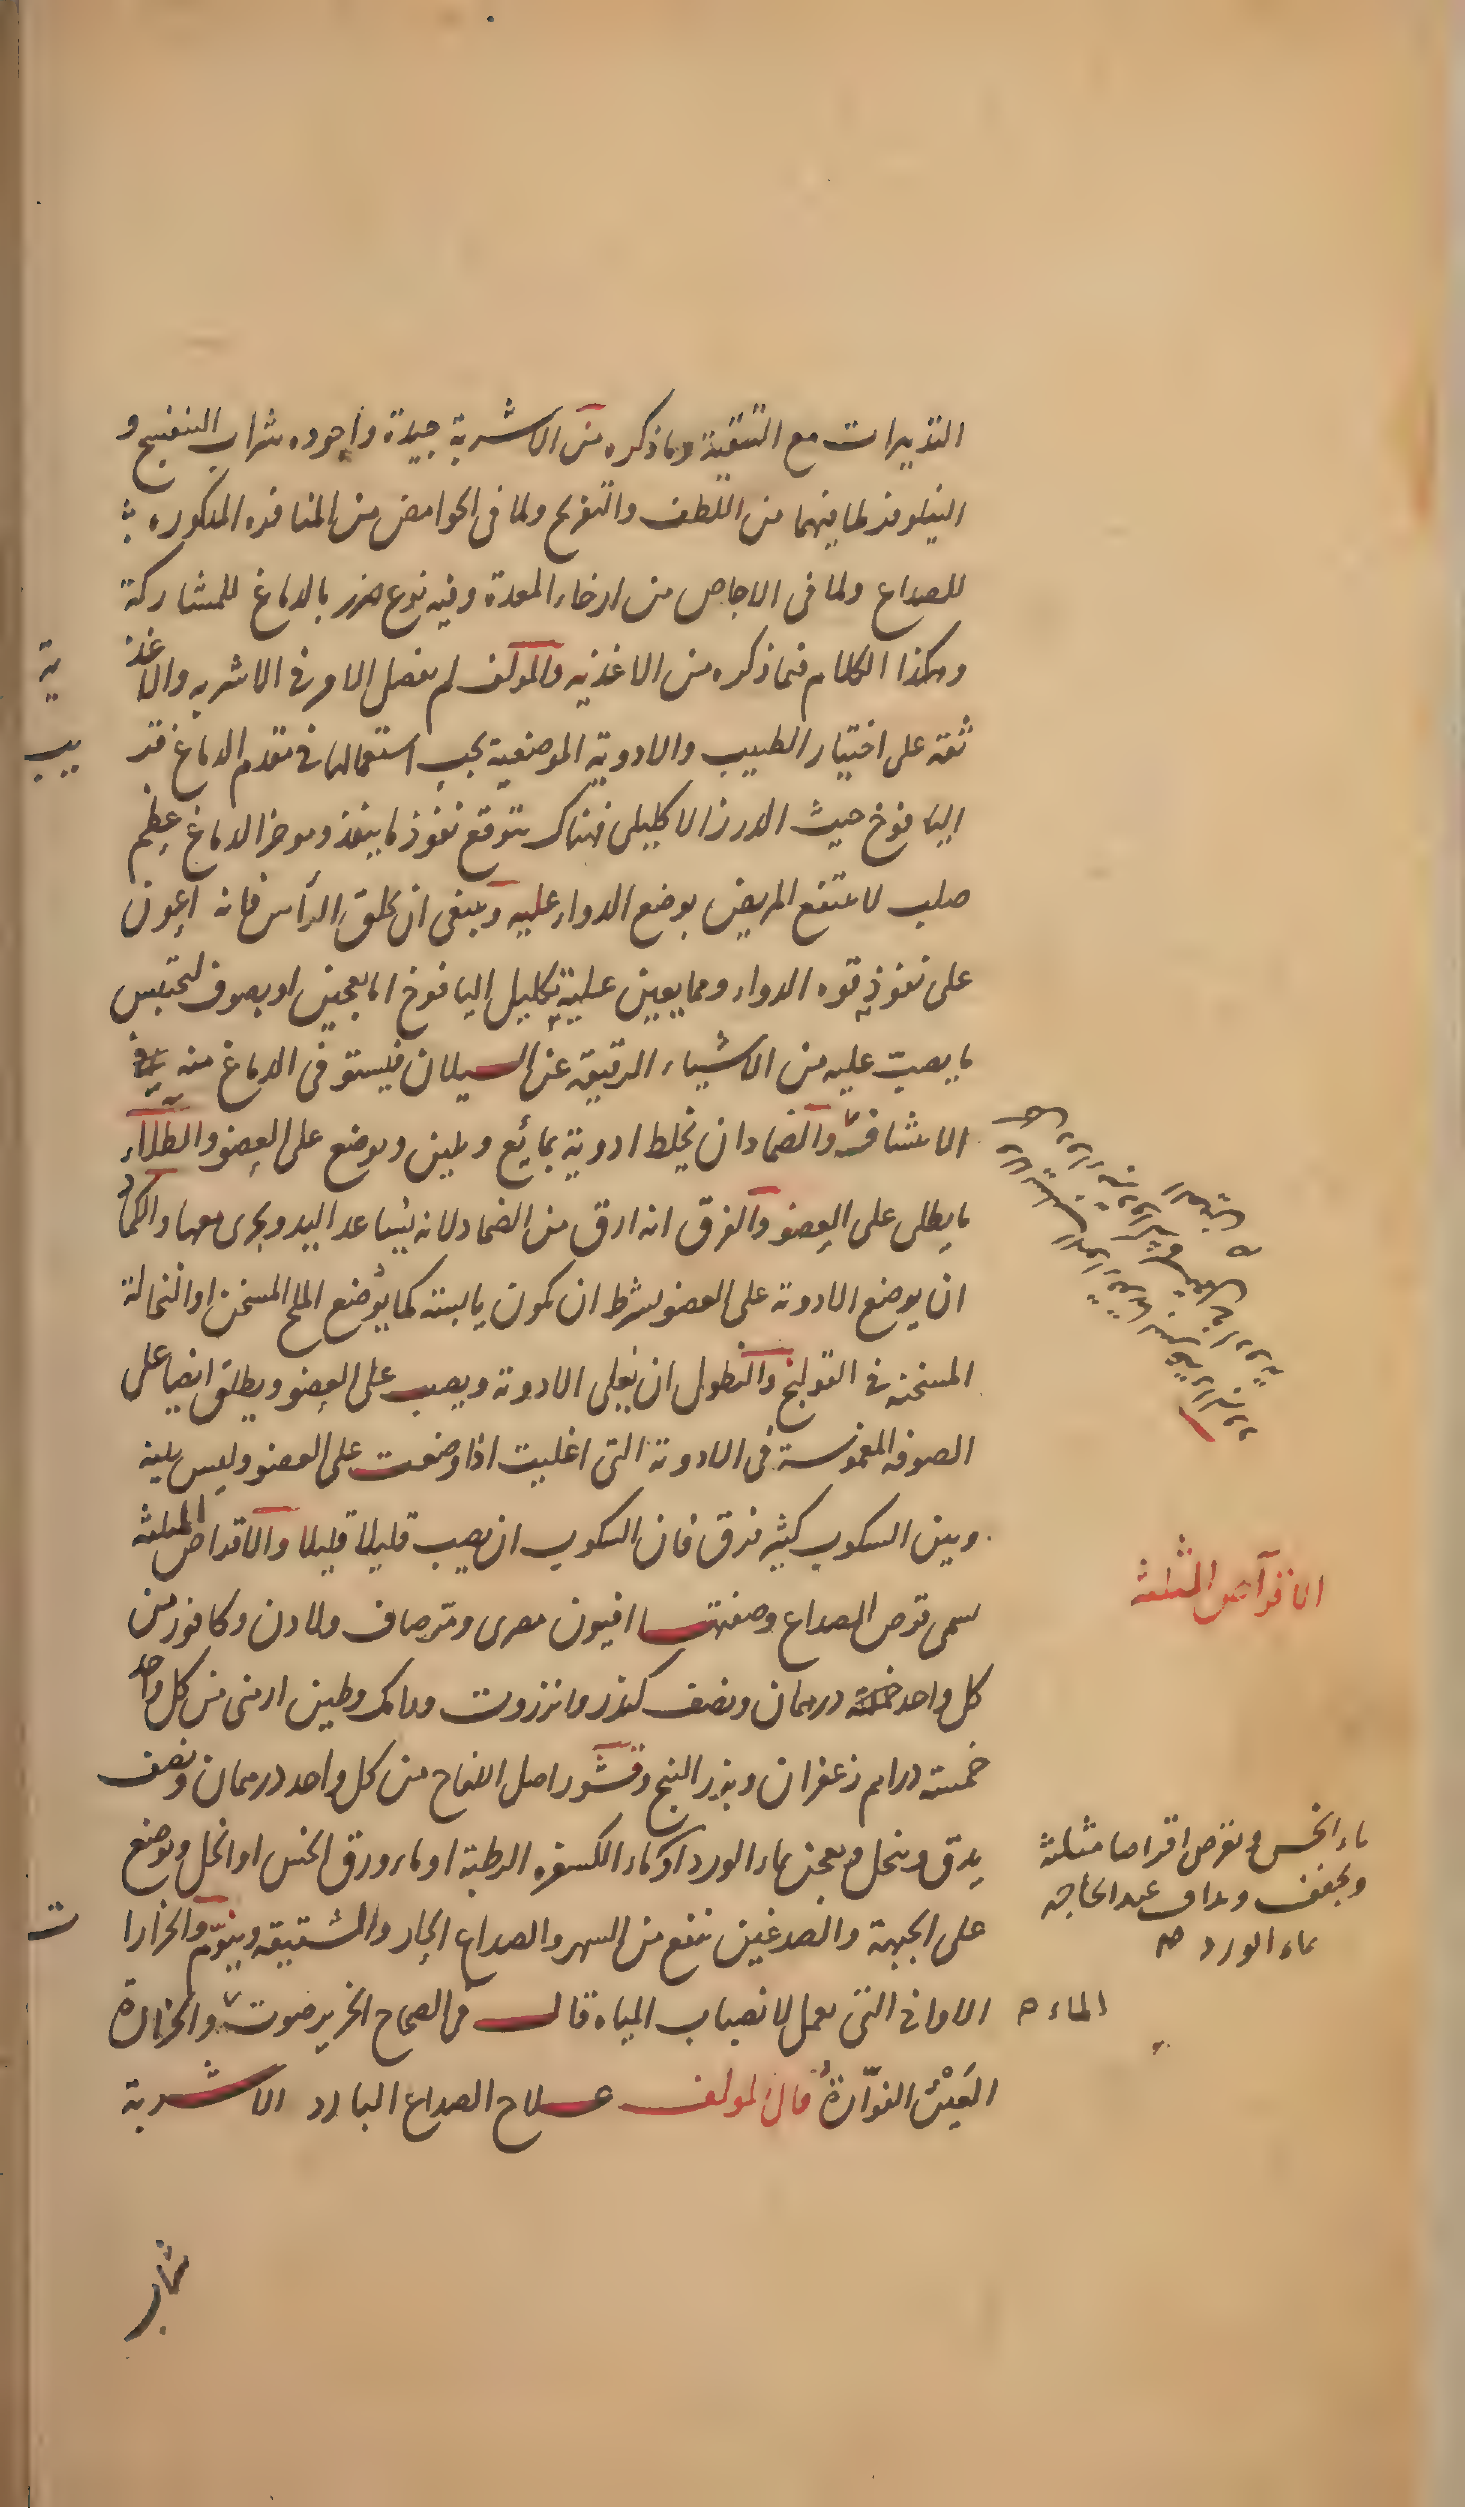 التدبيرات مع التنقية وما ذكره من الاشربة جيدة واجوده شراب البنفسج و
النيلوفر لما فيهما من اللطف والتفريح ولما فى الحوامض من المنافره المذكوره
للصداع ولما فى الاجاص من ارخاء المعدة وفيه نوع ضرر بالدماغ للمشاركة
وهكذا الكلام فيما ذكره من الاغذيه والمولف لم يفصل الامر فى الاشربه والاغذ
ية
ثقة على اختيار الطبيب والادوية الموضعية يجب استعمالها فى مقدم الدماغ قر
يب
اليافوخ حيث الدرز الاكليلى فهناك يتوقع نفوذ ما ينفذ وموخر الدماغ عظم
صلب لا ينتفع المريض بوضع الدواء عليه وينبغى ان يحلق الرأس فانه اعون
على نفوذ قوه الدواء ومما يعين عليه تكليل اليافوخ اما بعجين او بصوف ليحتبس
ما يصب عليه من الاشياء الرقيقة عن السيلان فيستوفى الدماغ منه
والضماد ان يخلط ادوية بمائع ويلين ويوضع على العضو والطلاء
ما يطلى على العضو والفرق انه ارق من الضماد لانه يتباعد اليد ويجرى معها والكماد
ان يوضع الادوية على العضو بشرط ان يكون يابسة كما يوضع الملح المسخن او النخالة
المسخنة فى القولنج والنطول ان يغلى الادوية ويصب على العضو ويطلق ايضا على
الصوفه المغموسة فى الادوية التى اغليت اذا وضعت على العضو وليس بينه
وبين السكوب كثير فرق فان السكوب ان يصب قليلا قليلا والاقراص المثلثه
الاقراص المثلثة
سمى قرص الصداع وصفتها افيون مصرى ومر صاف ولادن وكافور من
كل واحد درهمان ونصف كندر وانزروت وطين ارمنى من كل واحد
خمسة دراهم زعفران وبزر البنج وقشور اصل اللفاح من كل واحد درهمان ونصف
يدق وينخل ويعجن بماء الورد او بماء الكسفره الرطبة او ماء ورق الخس او الخل ويوضع
ماء الخس ويقرص اقراصا مثلثة
ويجفف ويداف عند الحاجه
بماء الورد
على الجبهة والصدغين ينفع من السهر والصداع الحار والشقيقه وينوّم والخرارا
ت
الاوانى التى يعمل لانصباب المياه قال فى الصحاح الخرير صوت والخرارة
الماء
العَيْن الفوّارة قال المولف علاج الصداع البارد الاشربة